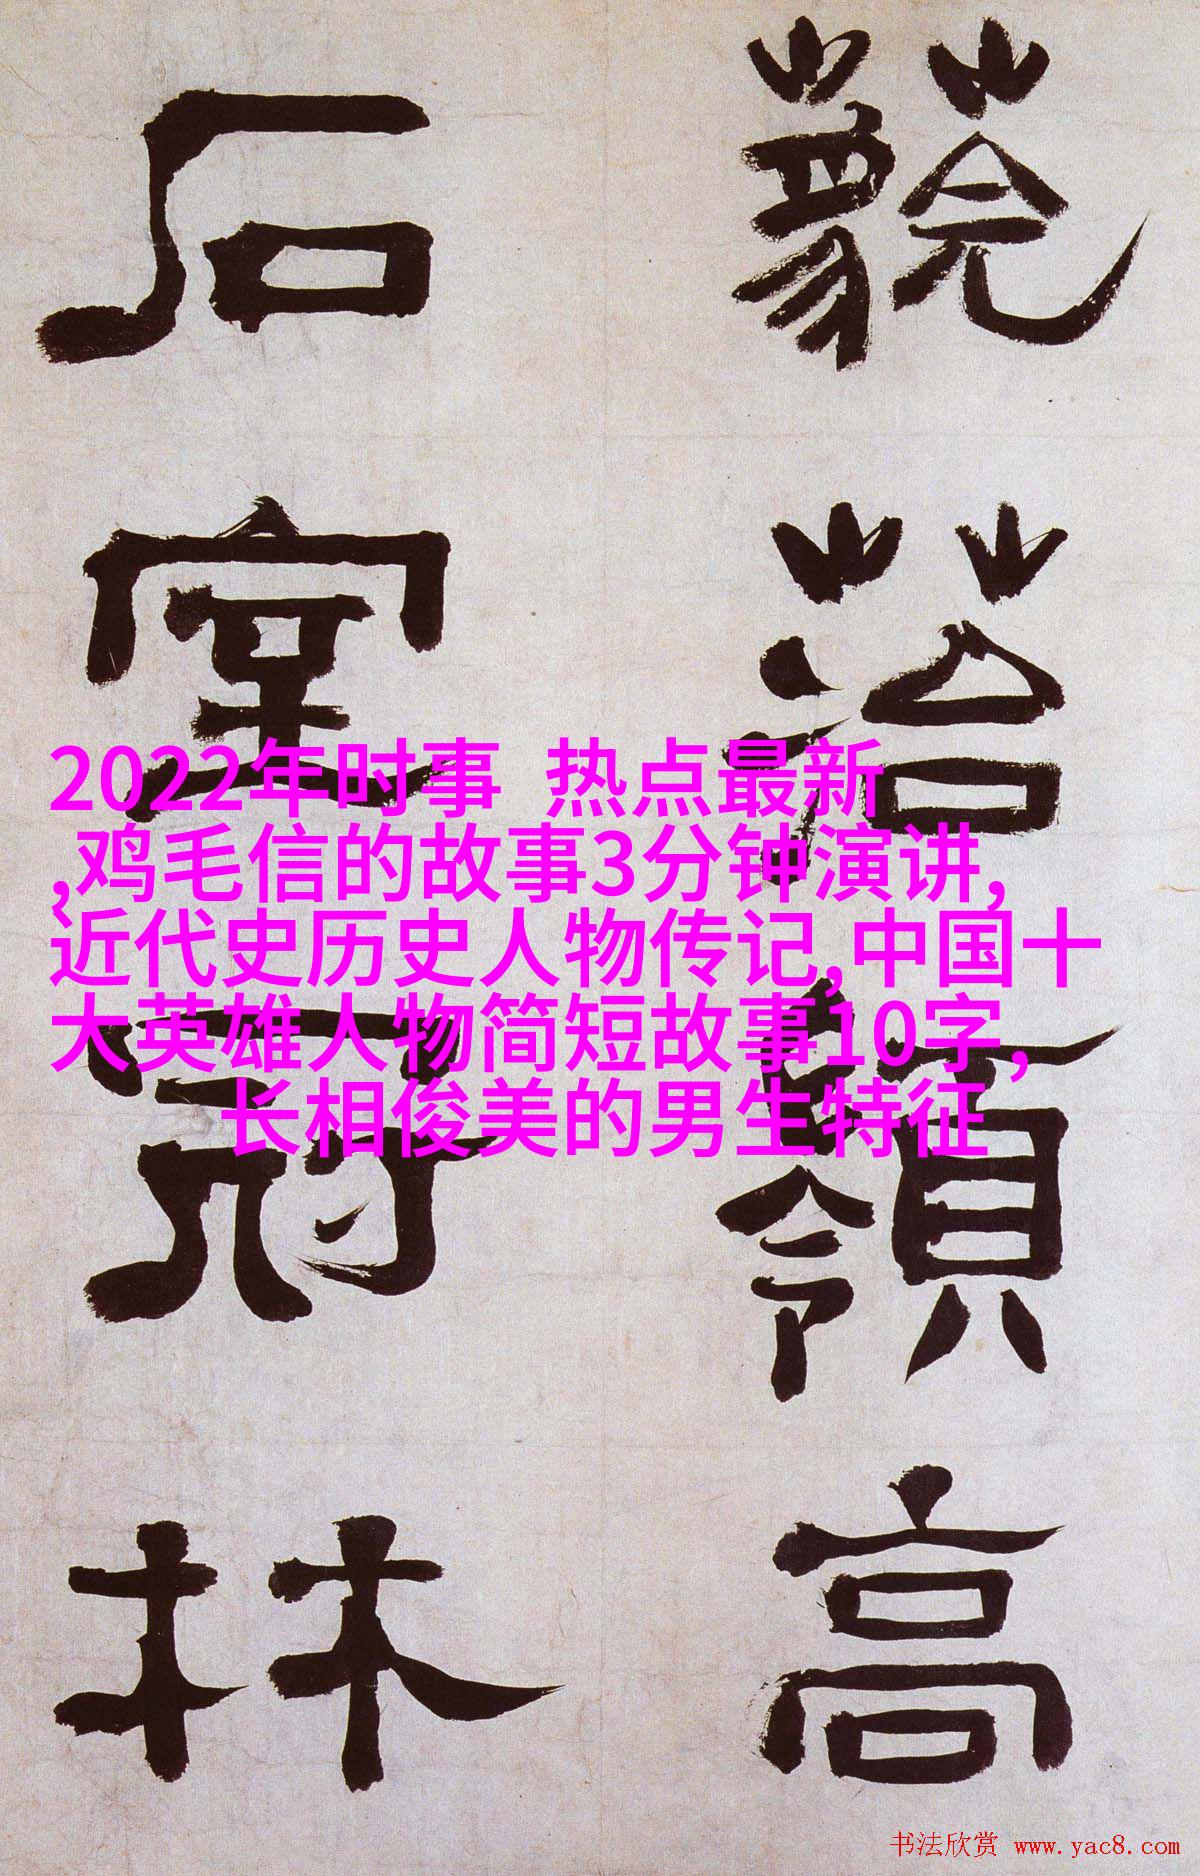 嶺高
石室冠林
2022年时事 热点最新
,鸡毛信的故事3分钟演讲,
近代史历史人物传记,中国十
大英雄人物简短故事10字,
长相俊美的男生特征
书法欣赏 www.yac8.com